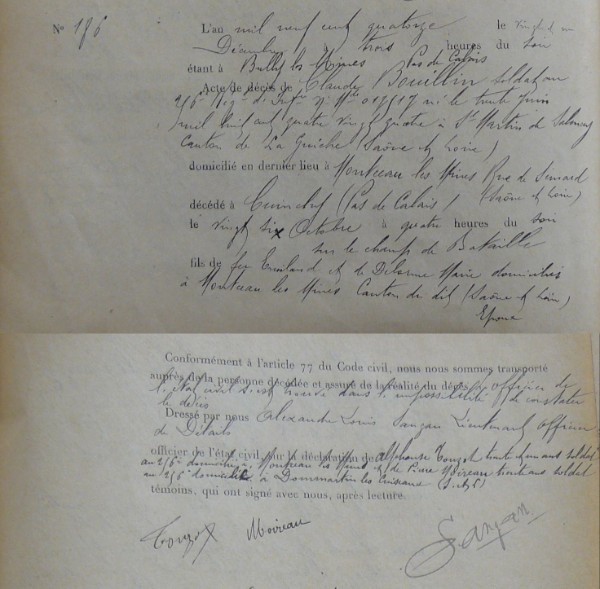 N° 176
L'an mil neuf cent quatorze le vingt un
Décembre à trois heures du soir
étant à Bully les Mines Pas de Calais
Acte de décès de Claude Bouillin soldat au
256e Reg. d'Inf. né le trente Juin
mil huit cent quatre vingt quatre à St Martin de Salencey
Canton de La Guiche (Saône et Loire)
domicilié en dernier lieu à Montceau les Mines Rue de
(Saône et Loire)
décédé à Cuinchy (Pas de Calais)
le vingt six Octobre à quatre heures du soir
sur le champ de Bataille
fils de feu Emiland et de Delorme Marie domiciliés
à Montceau les Mines Canton du dit (Saône et Loire)
Epoux
Conformément à l'article 77 du Code civil, nous nous sommes transporté
auprès de la personne décédée et assuré de la réalité du décès. officier de
l'état civil s'est trouvé dans l'impossibilité de constater
le décès
Dressé par nous Alexandre Louis Sanzan Lieutenant officier
de Détails
officier de l'état civil, sur la déclaration de Alphonse trente ans soldat
au 256e domicilié à Montceau les Mines et de Pierre Moireau trente ans soldat
au 256e domicilié à Dommartin les Cuiseaux (S. et L.)
témoins, qui ont signé avec nous, après lecture.
Moireau Sanzan